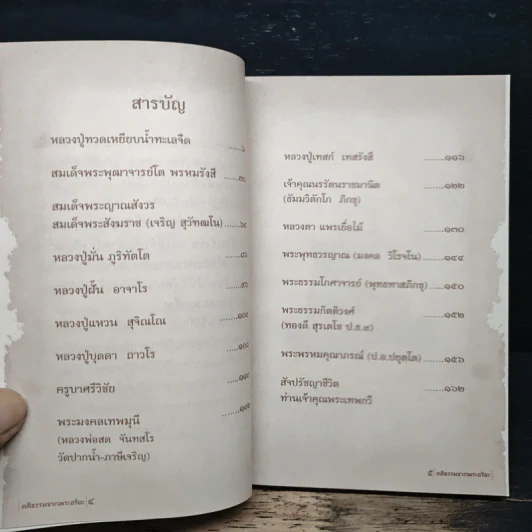 สารบัญ
หลวงปู่ทวดเหยียบน้ำทะเลจืด
สมเด็จพระพุฒาจารย์โต พรหมรังสี
สมเด็จพระญาณสังวร
สมเด็จพระสังฆราช (เจริญ สุวัฑฒโน)
หลวงปู่มั่น ภูริทัตโต
หลวงปู่ฝั้น อาจาโร
หลวงปู่แหวน สุจิณโณ
หลวงปู่บุดดา ถาวโร
ครูบาศรีวิชัย
พระมงคลเทพมุนี
(หลวงพ่อสด จันทสโร
วัดปากน้ำ-ภาษีเจริญ)
คติธรรมจากพระอริยะ ๔
หลวงปู่เทสก์ เทสรังสี ........๑๑๖
เจ้าคุณนรรัตนราชมานิต ........๑๒๒
(ธัมมวิตักโก ภิกขุ)
หลวงตา แพรเยื่อไม้ ........๑๓๐
พระพุทธวรญาณ (มงคล วิโรจโน) ........๑๔๔
พระธรรมโกศาจารย์ (พุทธทาสภิกขุ) ........๑๕๐
พระธรรมกิตติวงศ์ ........๑๕๒
(ทองดี สุรเตโช ป.ธ.๙)
พระพรหมคุณาภรณ์ (ป.อ.ปยุตโต) ........๑๕๖
สัจปรัชญาชีวิต ........๑๖๒
ท่านเจ้าคุณพระเทพกวี
๕ คติธรรมจากพระอริยะ